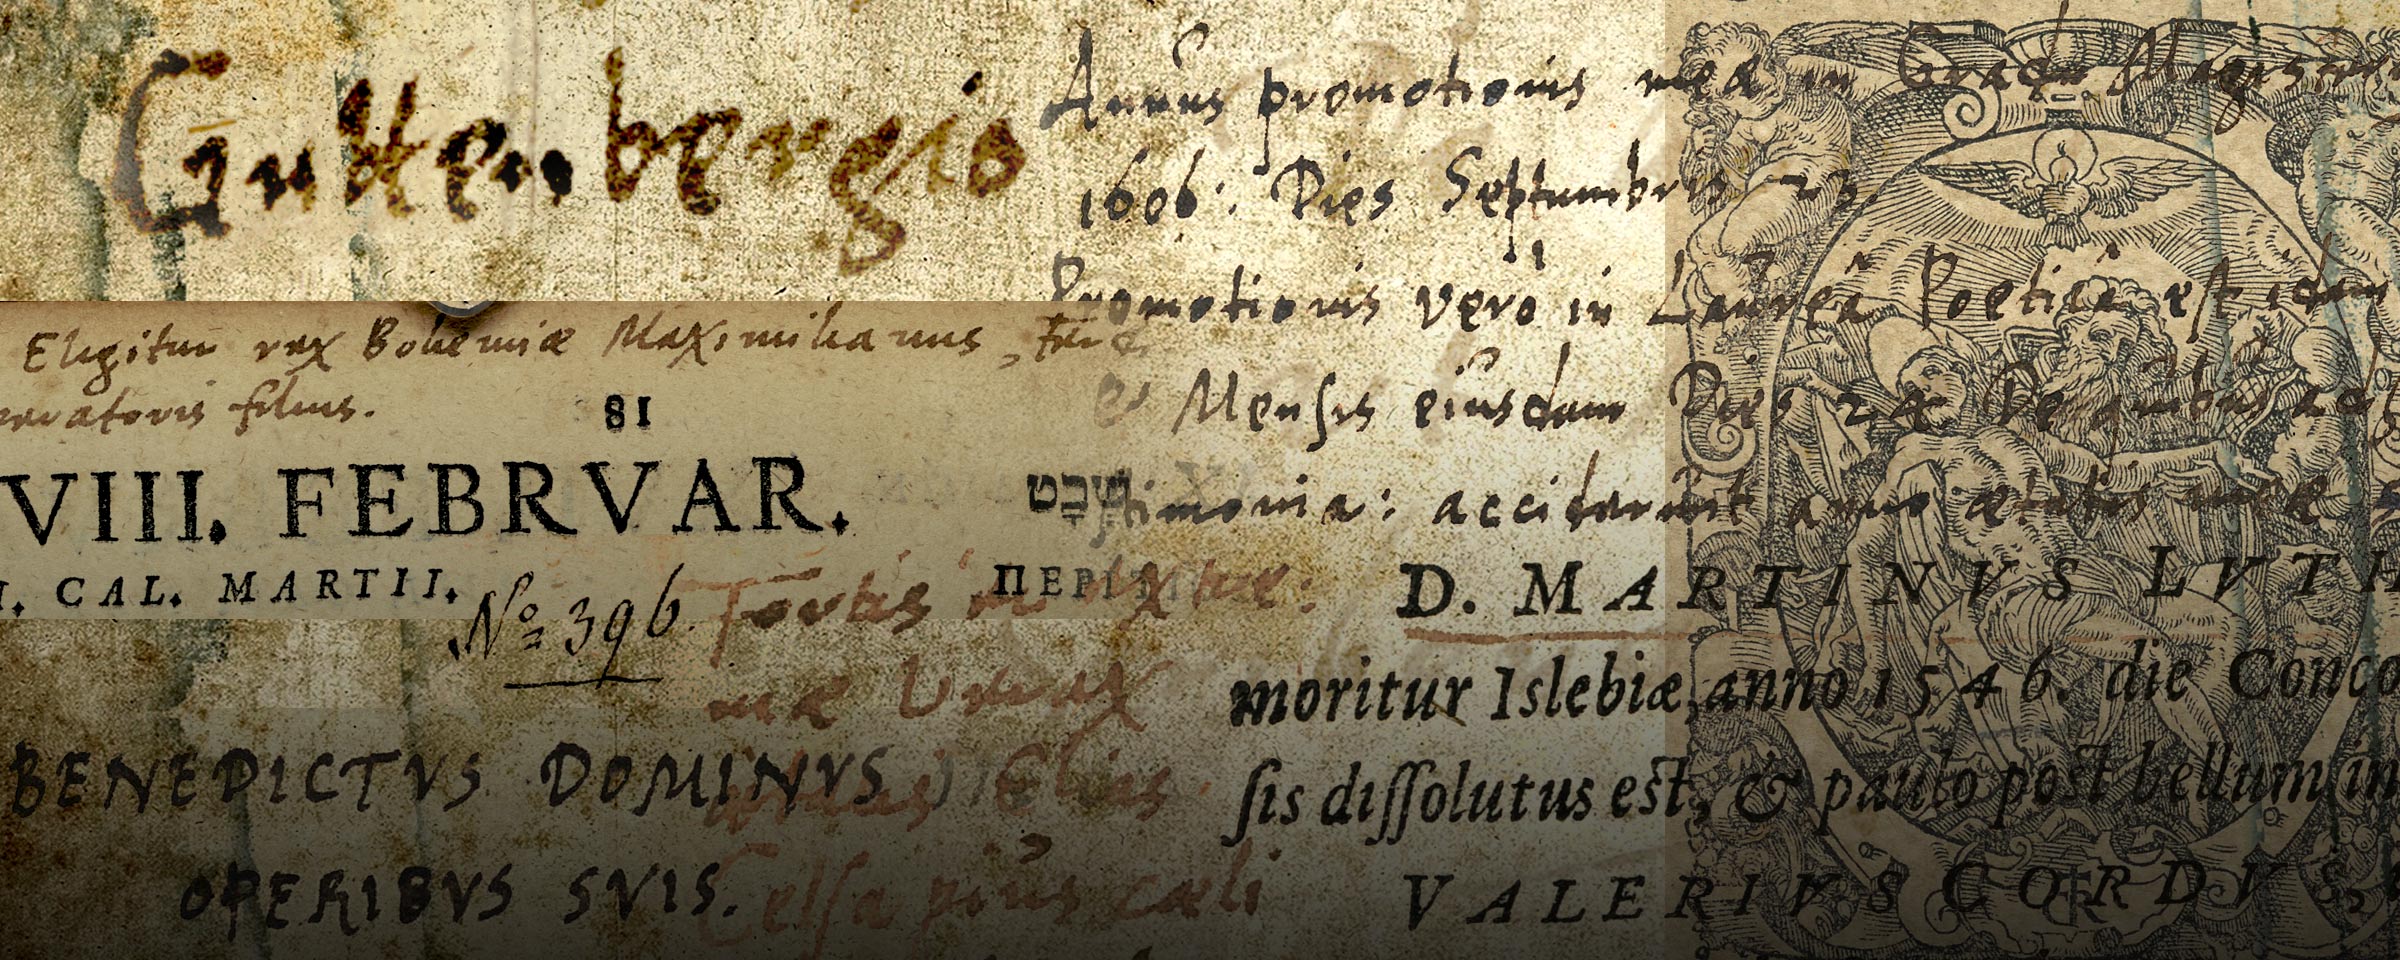 Guttenbergio
Annus promotionis meæ in Gradu Magisterii
1606: Dies Septembris 23.
Promotionis vero in Laureâ Poeticâ est idem
et Mensis eiusdam Dies 24 De quibus
timonia: acciderunt anno ætatis meæ
Eligitur rex Bohemiæ Maximilianus,
peratoris filius.
81
VIII. FEBRVAR.
שבט
I. CAL. MARTII.
ΠΕΡΙ
No 396.
Fortis
D. MARTINVS LVTH
moritur Islebiæ, anno 1546. die Conco
mæ
ſis diſſolutus est, & paulo post bellum in
BENEDICTVS DOMINVS
Elias
OPERIBVS SVIS.
Celsa prius cæli
VALERIVS CORDVS,